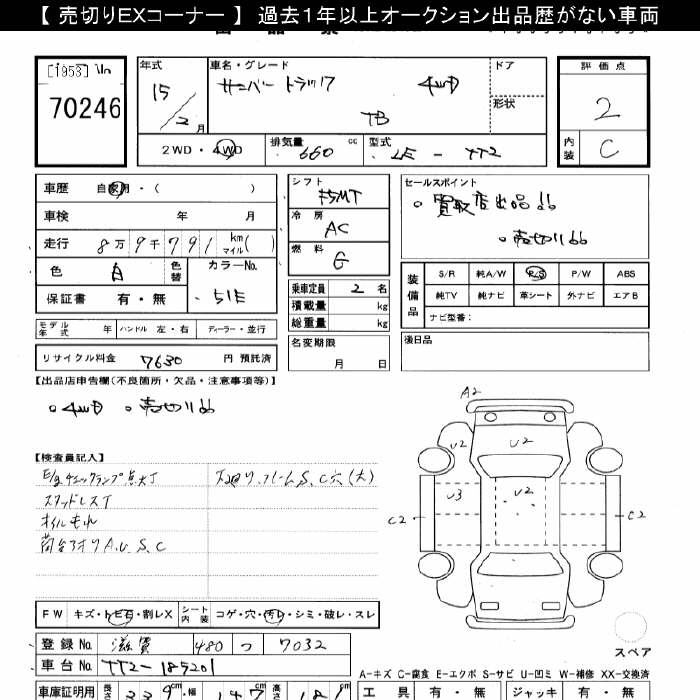 【 売切りEXコーナー 】 過去1年以上オークション出品歴がない車両
[1953] In
70246
年式
15/2月
車名・グレード
サンバー トラック 4WD
TB
ドア
形状
評価点
2
内装
C
2WD・4WD
排気量
660 cc
型式
LE - TT2
車歴 自家用・( )
車検 年 月
走行 8万9千791 km マイル( )
色 白 色替
カラーNo.
51E
保証書 有・無
シフト
F5MT
冷房
AC
燃料
G
乗車定員 2 名
積載量 kg
総重量 kg
名変期限
月 日
セールスポイント
○ 買取店出品!!
○ 売切り!!
装備品
S/R 純A/W P/S P/W ABS
純TV 純ナビ 革シート 外ナビ エアB
ナビ型番:
後日品
モデル年式 年 ハンドル 左・右 ディーラー・並行
リサイクル料金 7630 円 預託済
【出品店申告欄(不良箇所・欠品・注意事項等)】
○ 4WD ○ 売切り!!
【検査員記入】
E/gチェックランプ点灯
スタッドレスT
オイルもれ
荷台アオリA.U.S.C
下廻り.フレームS.C穴(大)
A2
U2
U2
U3
U2
C2
C2
スペア
FW キズ・トビ石・割レX
シート内装 コゲ・穴・汚レ・シミ・破レ・スレ
登録No. 滋賀 480 つ 7032
車台No. TT2-185201
A-キズ C-腐食 E-エクボ S-サビ U-凹ミ W-補修 XX-交換済
車庫証明用 長さ 339cm 幅 147 高さ 181
工具 有・無 ジャッキ 有・無